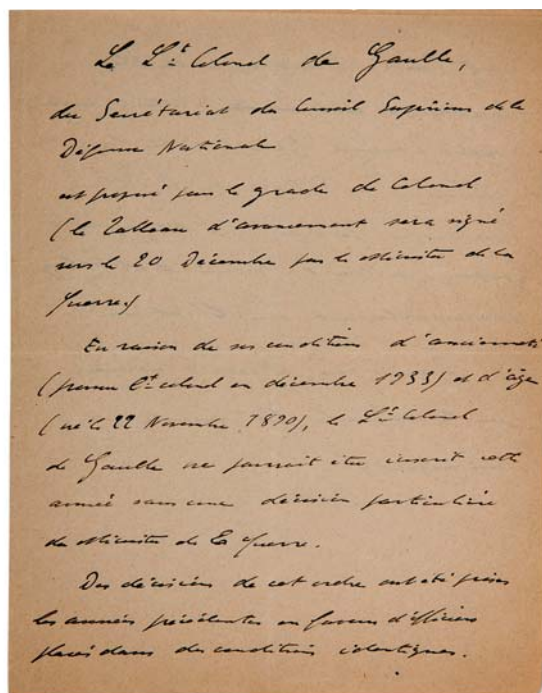 Le Lt Colonel de Gaulle,
du Secrétariat du Conseil Supérieur de la
Défense Nationale
est proposé pour le grade de Colonel
(le Tableau d'avancement sera signé
vers le 20 Décembre par le Ministre de la
Guerre)
En raison de ses conditions d'ancienneté
(promu Lt colonel en décembre 1933) et d'âge
(né le 22 Novembre 1890), le Lt Colonel
de Gaulle ne pourrait être inscrit cette
année sans une décision particulière
du Ministre de la Guerre.
Des décisions de cet ordre ont été prises
les années précédentes en faveur d'officiers
placés dans des conditions identiques.